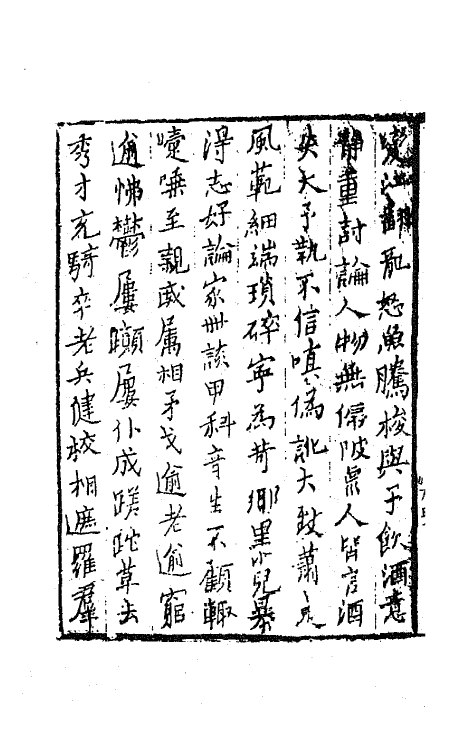 龍怒魚騰梭與予飲酒意
靜重討論人物無偏陂眾人皆言酒
失大予執不信嗔偽訛大致蕭之
風範細端瑣碎寧為苛鄉里小兒暴
得志好論家世談甲科音生不顧輒
嘵唾至親戚屬相矛戈逾老逾窮
逾怫鬱屢躓屢仆成蹉跎草去
秀才充騎卒老兵健校相遮羅羣